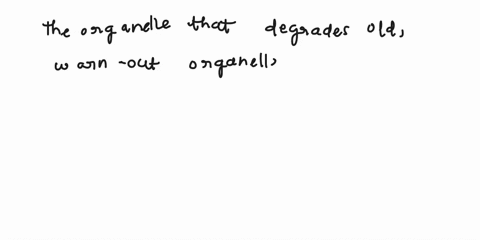 the organelle that degrades old,
warn-out organell,